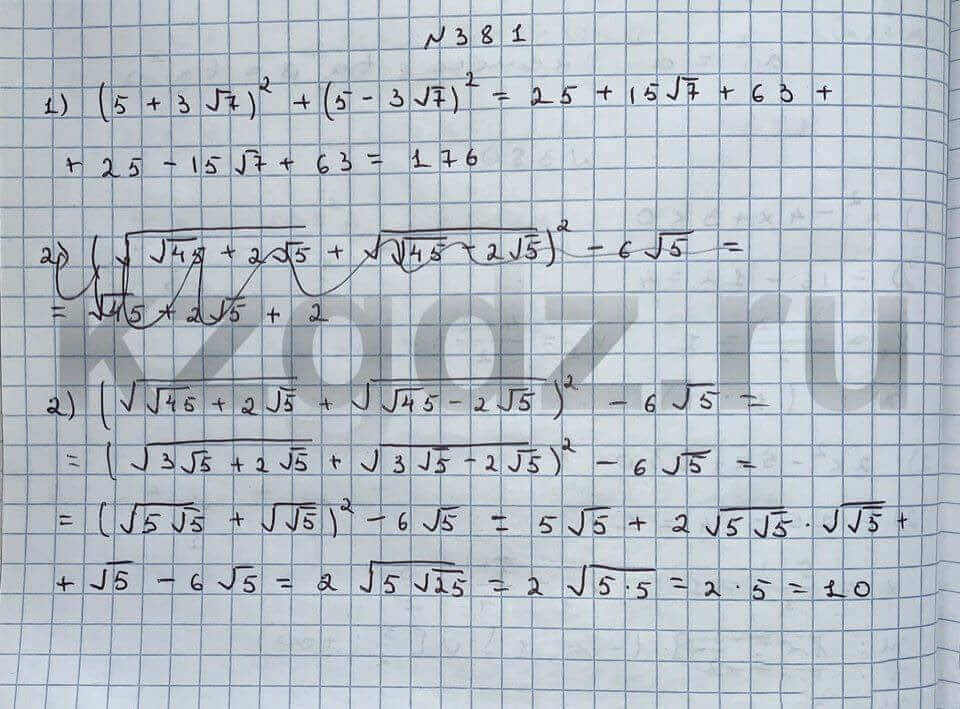 N381
1) (5 + 3√7)² + (5 - 3√7)² = 25 + 15√7 + 63 +
+ 25 - 15√7 + 63 = 176
2) (√(√45 + 2√5) + √(√45 - 2√5))² - 6√5 =
= √45 + 2√5 + 2
kzgdz.ru
2) (√(√45 + 2√5) + √(√45 - 2√5))² - 6√5 =
= (√(3√5 + 2√5) + √(3√5 - 2√5))² - 6√5 =
= (√(5√5) + √√5)² - 6√5 = 5√5 + 2√(5√5) · √√5 +
+ √5 - 6√5 = 2√(5√25) = 2√(5·5) = 2·5 = 10